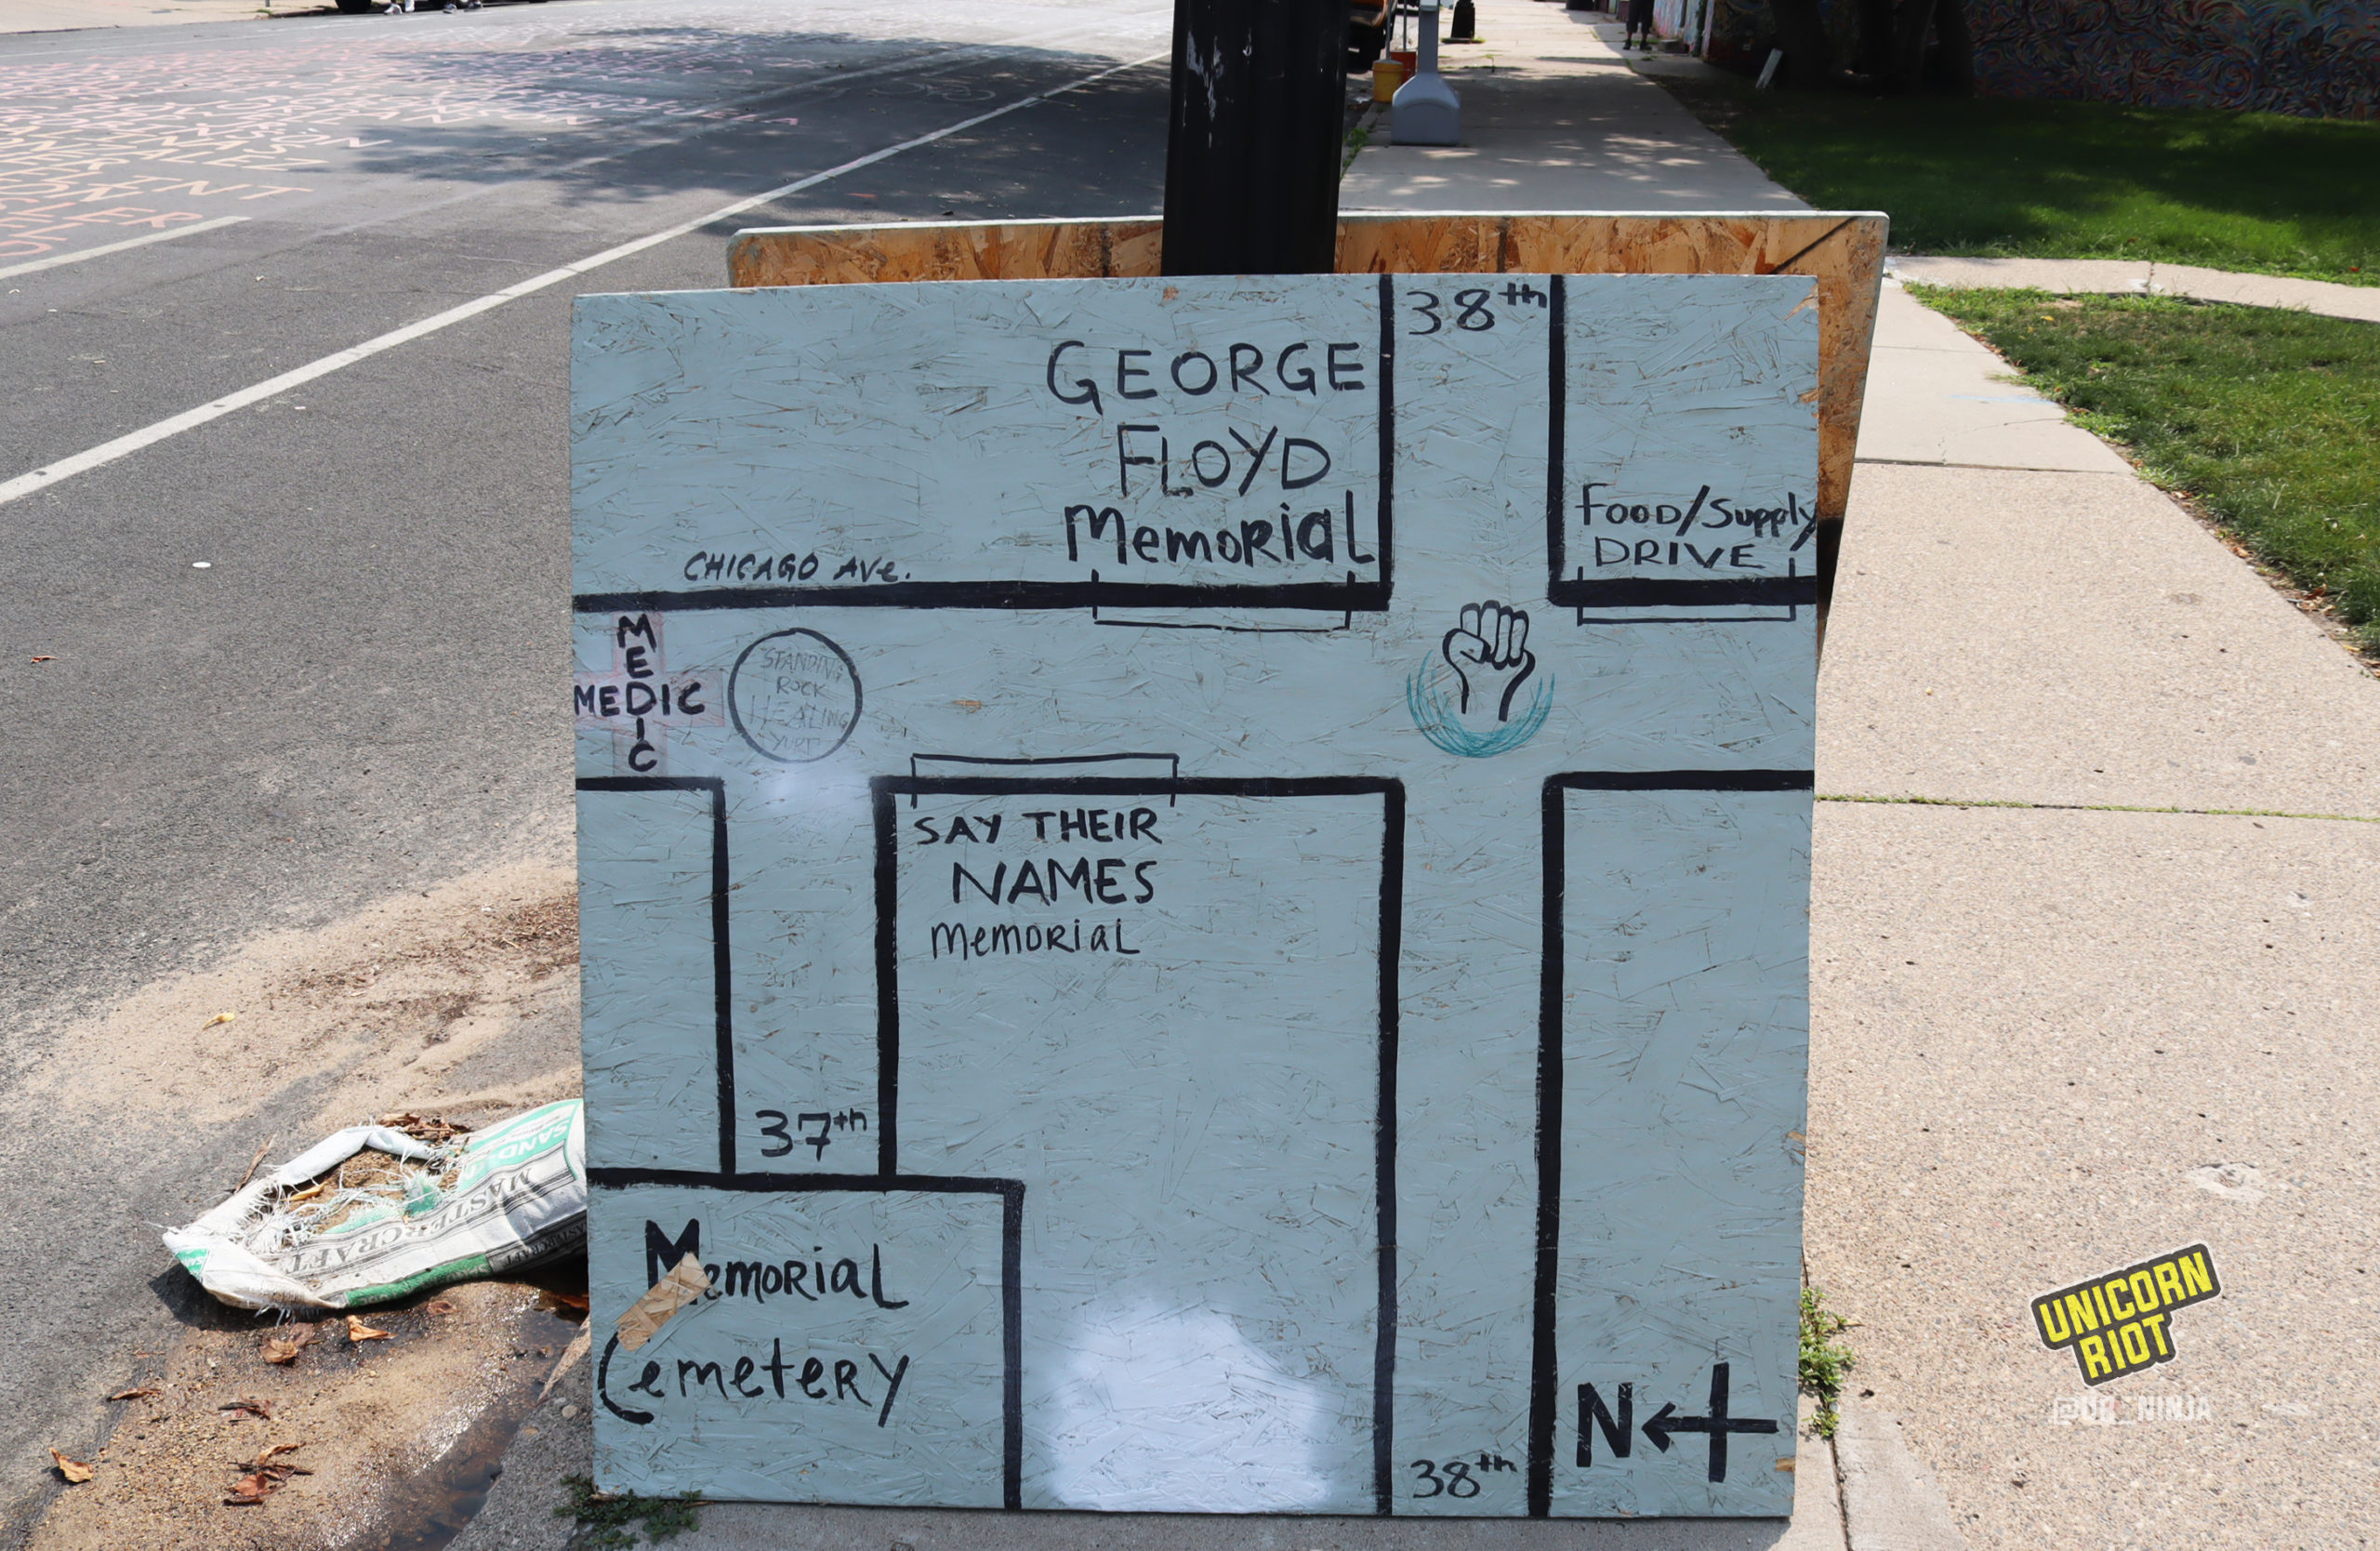 38th
GEORGE
FLOYD
Memorial
FOOD/Supply
DRIVE
CHICAGO AVe.
MEDIC
MEDIC
STANDING
ROCK
HEALING
YURT
SAY THEIR
NAMES
Memorial
37th
Memorial
Cemetery
38th
N
E
W
MASTERCRAFT
UNICORN
RIOT
@UR_NINJA